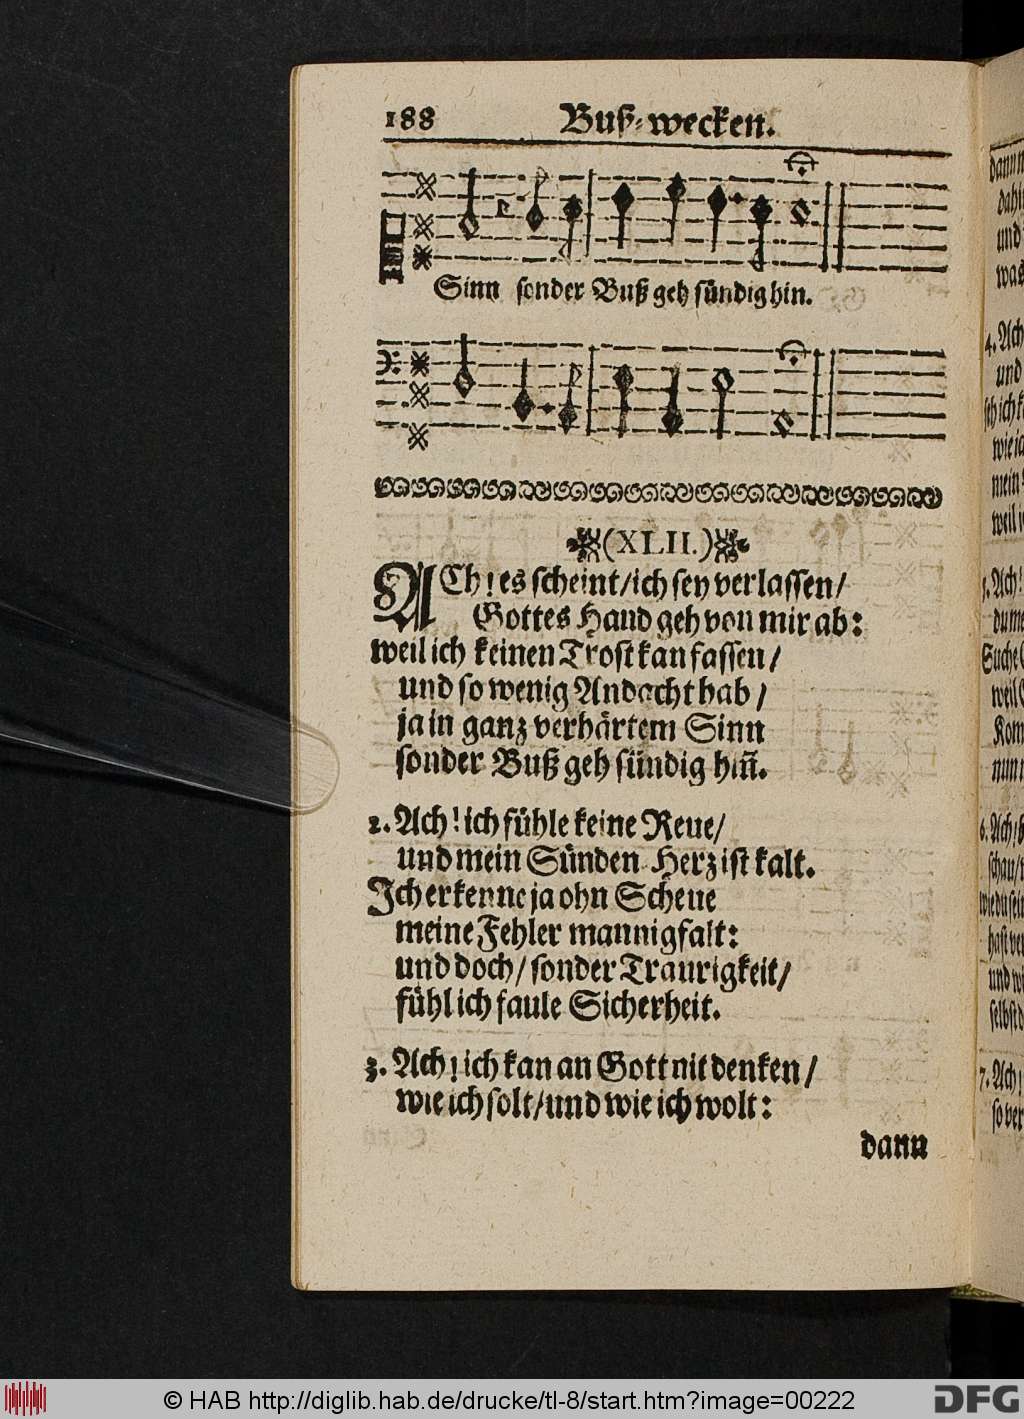 188 Buß-wecken.
Sinn sonder Buß geh sündig hin.
(XLII.)
ACh! es scheint/ ich sey verlassen/
Gottes Hand geh von mir ab:
weil ich keinen Trost kan fassen/
und so wenig Andacht hab/
ja in ganz verhärtem Sinn
sonder Buß geh sündig hin̄.
2. Ach! ich fühle keine Reue/
und mein Sünden-Herz ist kalt.
Ich erkenne ja ohn Scheue
meine Fehler mannigfalt:
und doch/ sonder Traurigkeit/
fühl ich faule Sicherheit.
3. Ach! ich kan an Gott nit denken/
wie ich solt/ und wie ich wolt:
dann
4. Ach
und
wie ic
mein
weil
5. Ach!
du me
Suche
weil
Kom
nun
6. Ach
schau/
hast ver
und wi
selbst d
7. Ach
so ver
© HAB http://diglib.hab.de/drucke/tl-8/start.htm?image=00222
DFG